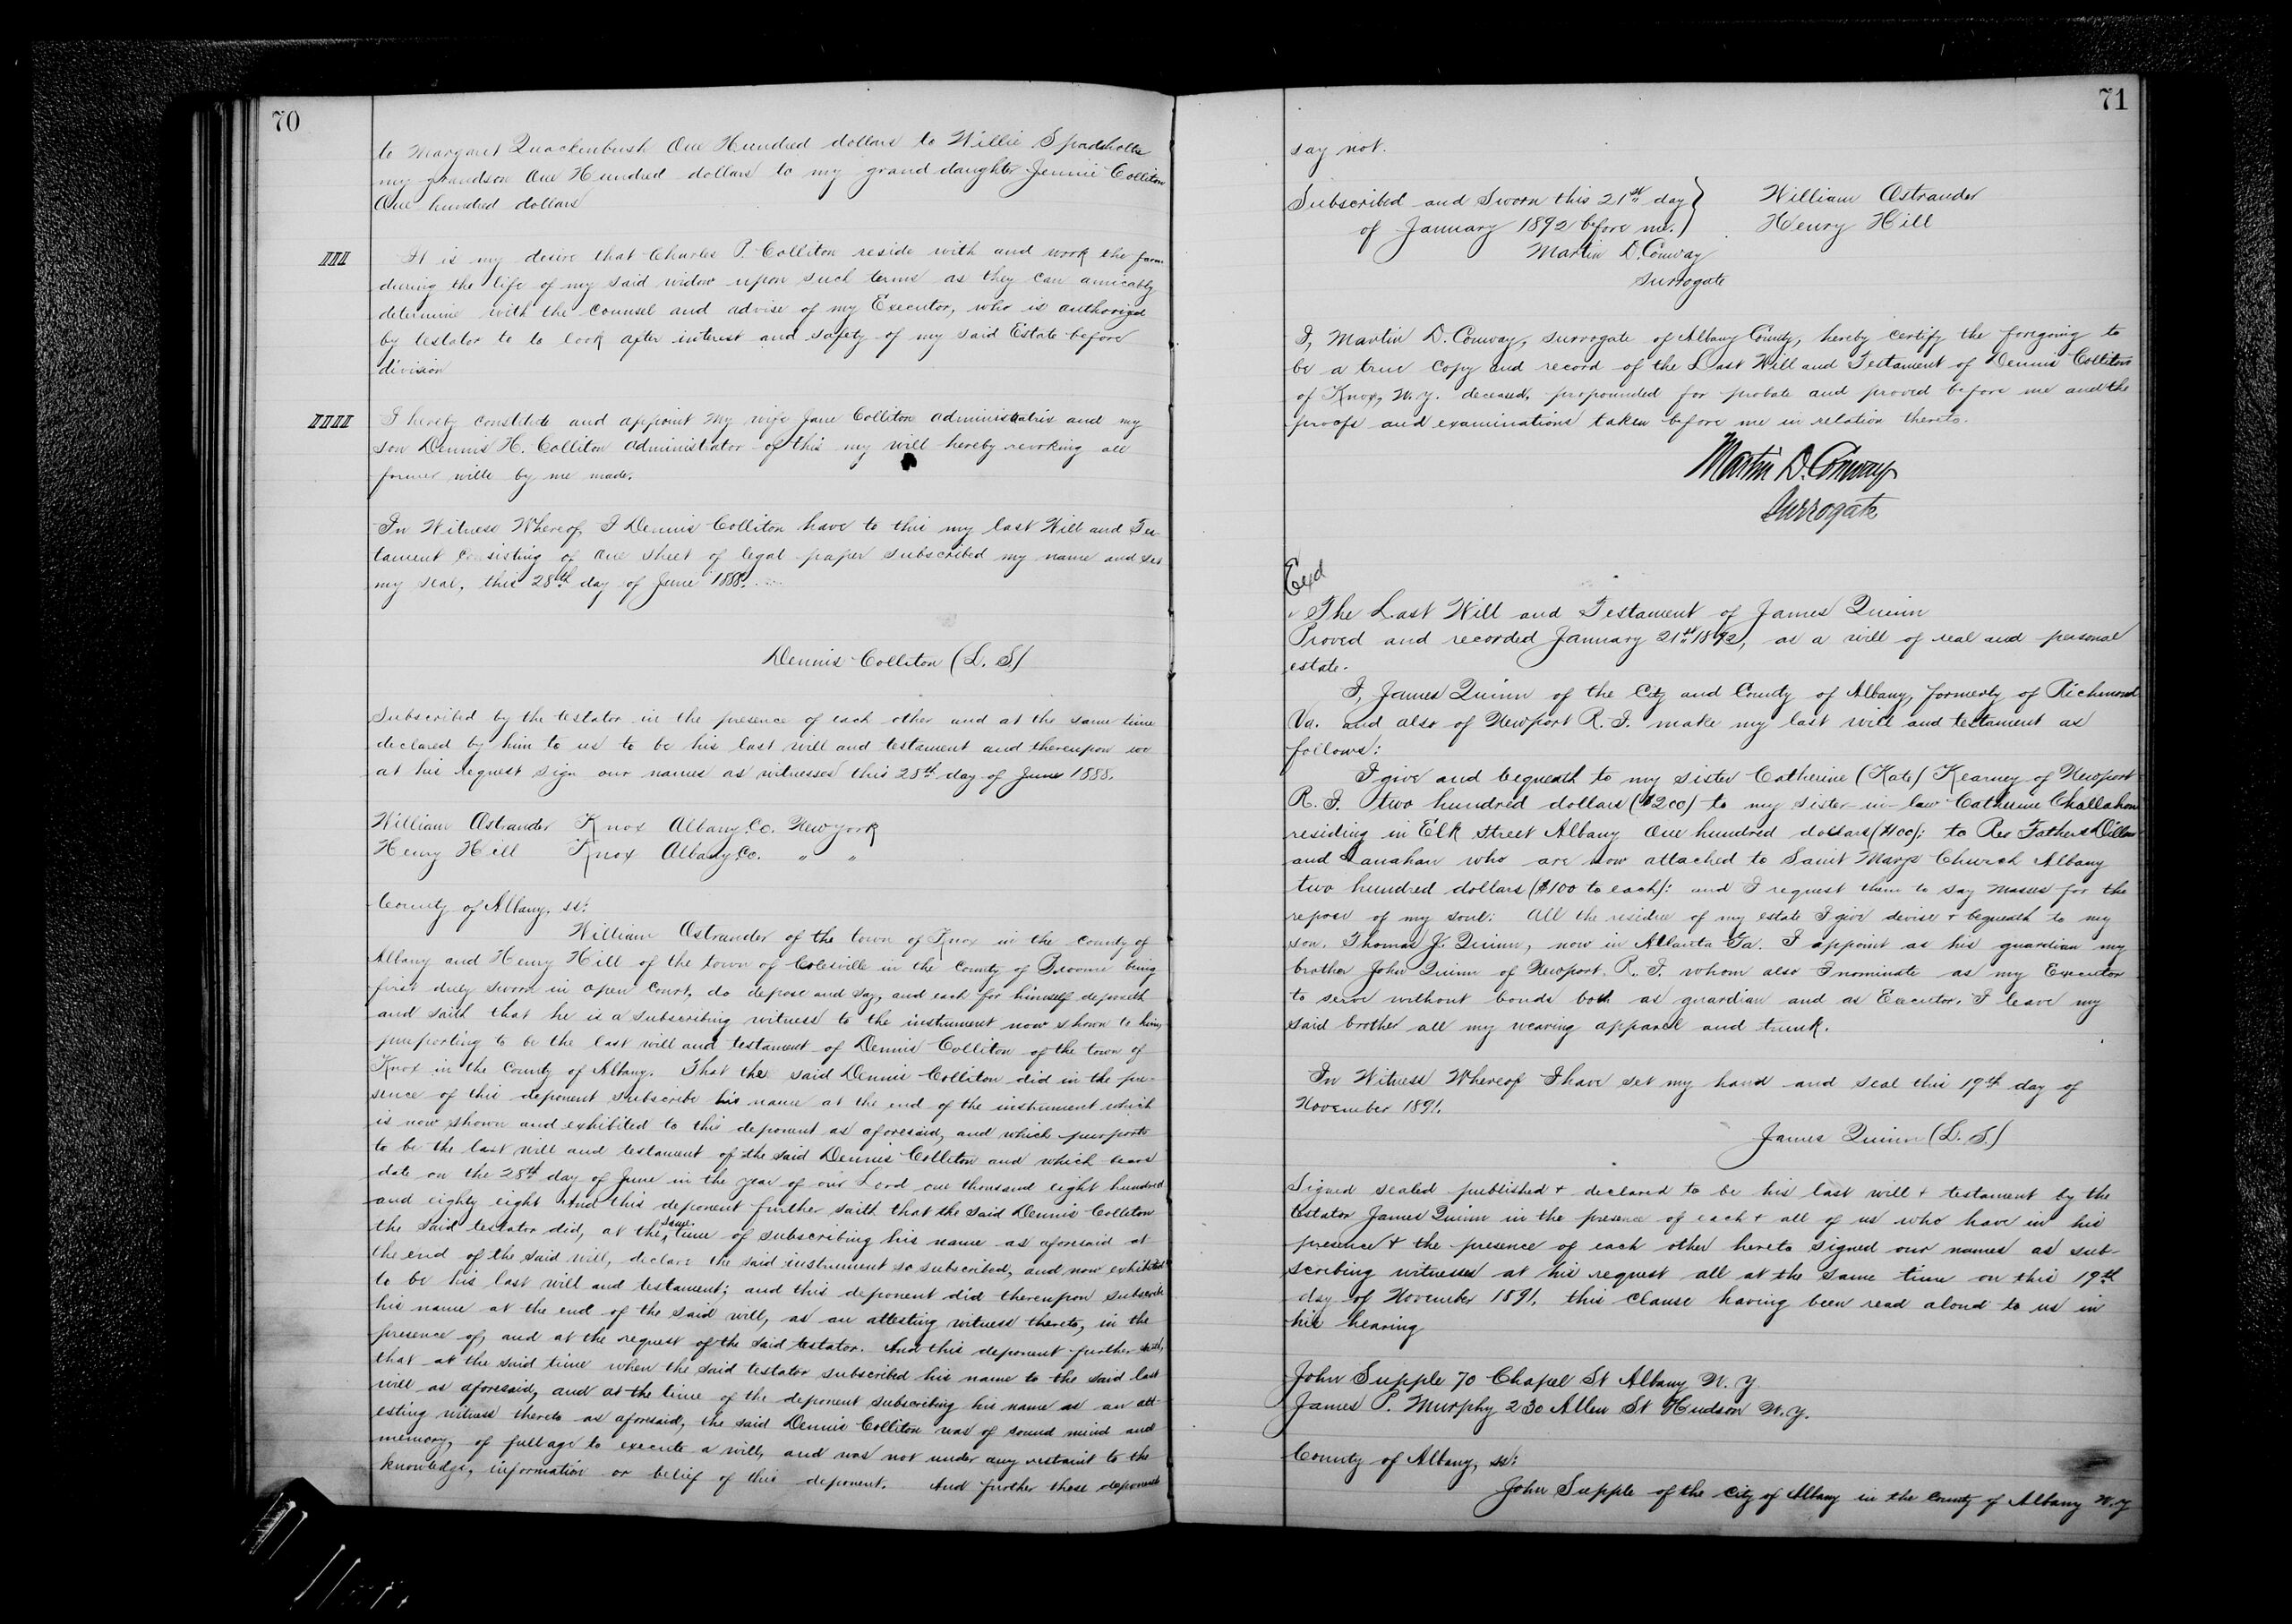 70
to Margaret Quackenbush One Hundred dollars to Willie
my grandson One Hundred dollars to my grand daughter Jennie Colliton
One hundred dollars
III It is my desire that Charles P. Colliton reside with and work the farm
during the life of my said widow upon such terms as they can amicably
determine with the counsel and advise of my Executor, who is authorized
by testator to to look after interest and safety of my said Estate before
division
IIII I hereby constitute and appoint my wife Jane Colliton administratrix and my
son Dennis H. Colliton administrator of this my will hereby revoking all
former wills by me made.
In Witness Whereof, I Dennis Colliton have to this my last Will and Tes-
tament consisting of one sheet of legal paper subscribed my name and set
my seal, this 28th day of June 1888.
Dennis Colliton (L. S.)
Subscribed by the testator in the presence of each other and at the same time
declared by him to us to be his last will and testament and thereupon we
at his request sign our names as witnesses this 28th day of June 1888.
William Ostrander Knox Albany Co. New York
Henry Hill Knox Albany Co. " "
County of Albany, ss:
William Ostrander of the town of Knox in the county of
Albany and Henry Hill of the town of Colesville in the county of Broome being
first duly sworn in open court, do depose and say, and each for himself deposeth
and saith that he is a subscribing witness to the instrument now shown to him,
purporting to be the last will and testament of Dennis Colliton of the town of
Knox in the County of Albany. That the said Dennis Colliton did in the pre-
sence of this deponent subscribe his name at the end of the instrument which
is now shown and exhibited to this deponent as aforesaid, and which purports
to be the last will and testament of the said Dennis Colliton and which bears
date on the 28th day of June in the year of our Lord one thousand eight hundred
and eighty eight And this deponent further saith that the said Dennis Colliton
the said testator did, at the same time of subscribing his name as aforesaid at
the end of the said will, declare the said instrument so subscribed, and now exhibited
to be his last will and testament; and this deponent did thereupon subscribe
his name at the end of the said will, as an attesting witness thereto, in the
presence of, and at the request of the said testator. And this deponent further saith,
that at the said time when the said testator subscribed his name to the said last
will as aforesaid, and at the time of the deponent subscribing his name as an att-
esting witness thereto as aforesaid, the said Dennis Colliton was of sound mind and
memory, of full age to execute a will, and was not under any restraint to the
knowledge, information or belief of this deponent. And further these deponents
71
say not.
Subscribed and Sworn this 21st day William Ostrander
of January 1892 before me. Henry Hill
Martin D. Conway
Surrogate
I, Martin D. Conway, Surrogate of Albany County, hereby certify the foregoing to
be a true copy and record of the Last Will and Testament of Dennis Colliton
of Knox, N.Y. deceased, propounded for probate and proved before me and the
proofs and examinations taken before me in relation thereto.
Martin D. Conway
Surrogate
Exd
The Last Will and Testament of James Quinn
Proved and recorded January 21st 1892, as a will of real and personal
estate.
I, James Quinn of the City and County of Albany, formerly of Richmond
Va. and also of Newport R. I. make my last will and testament as
follows:
I give and bequeath to my sister Catherine (Kate) Kearney of Newport
R. I. two hundred dollars ($200) to my sister-in-law Catherine Challahan
residing in Elk Street Albany One hundred dollars ($100); to Rev Fathers Dillon
and Lanahan who are now attached to Saint Marys Church Albany
two hundred dollars ($100 to each): and I request them to say masses for the
repose of my soul: All the residue of my estate I give devise & bequeath to my
son. Thomas J. Quinn, now in Atlanta Ga. I appoint as his guardian my
brother John Quinn of Newport. R. I. whom also I nominate as my Executor
to serve without bonds both as guardian and as Executor. I leave my
said brother all my wearing apparel and trunk.
In Witness Whereof I have set my hand and seal this 19th day of
November 1891.
James Quinn (L. S.)
Signed sealed published & declared to be his last will & testament by the
testator James Quinn in the presence of each & all of us who have in his
presence & the presence of each other hereto signed our names as sub-
scribing witnesses at his request all at the same time on this 19th
day of November 1891. this clause having been read aloud to us in
his hearing
John Supple 70 Chapel St Albany N. Y.
James P. Murphy 230 Allen St Hudson N.Y.
County of Albany, ss:
John Supple of the City of Albany in the County of Albany N.Y